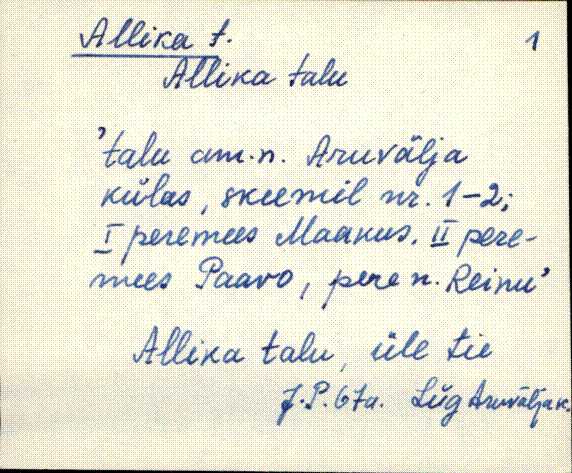 Allika t. 1
Allika talu
'talu am.n. Aruvälja
külas, skeemil nr. 1-2;
I peremees Maakus, II pere-
mees Paavo, pere n. Reinu'
Allika talu, üle tie
J.P. 67a. Lüg Aruvälja k.